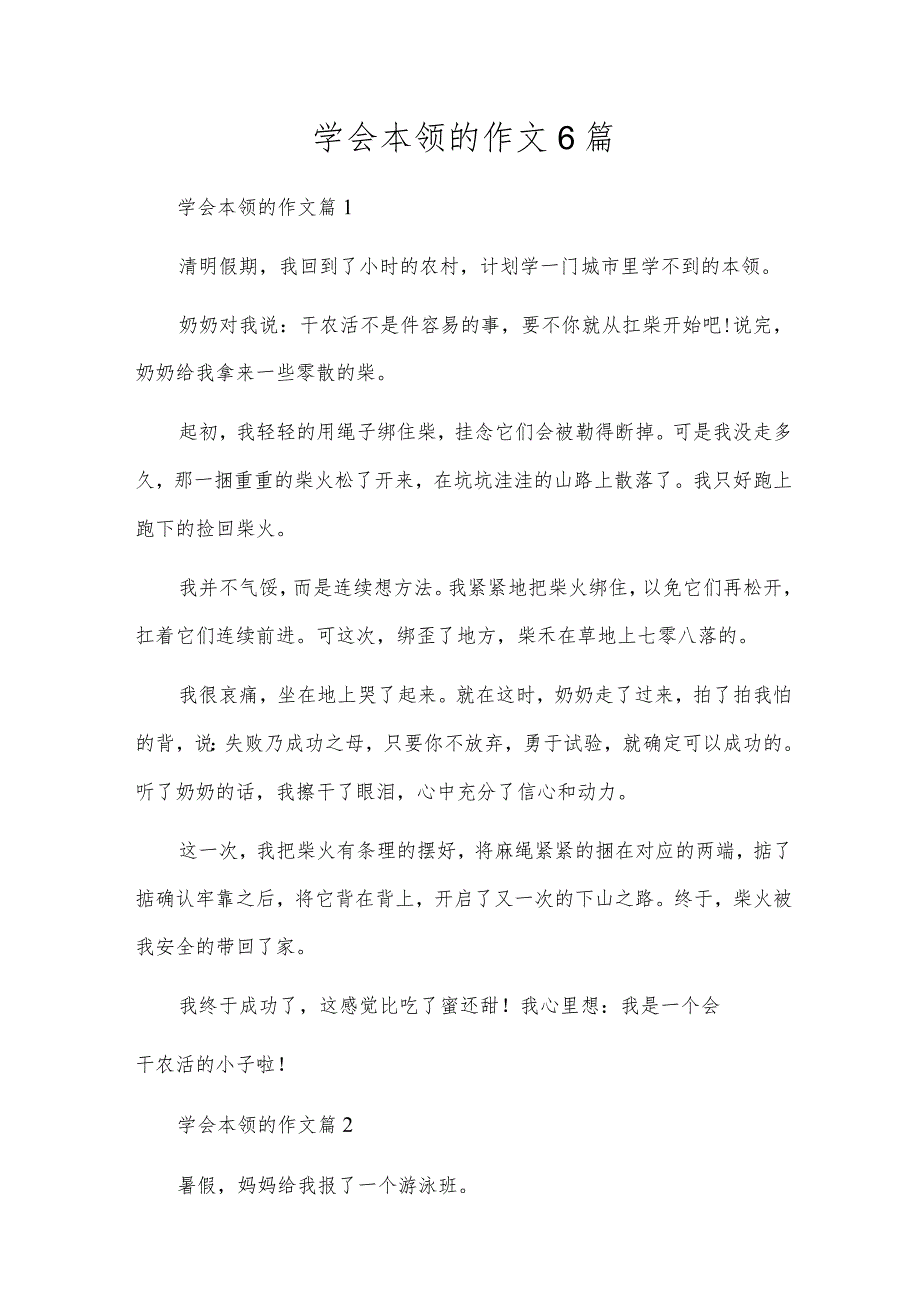 学会本领的作文6篇
学会本领的作文篇1
清明假期，我回到了小时的农村，计划学一门城市里学不到的本领。
奶奶对我说：干农活不是件容易的事，要不你就从扛柴开始吧！说完，
奶奶给我拿来一些零散的柴。
起初，我轻轻的用绳子绑住柴，挂念它们会被勒得断掉。可是我没走多
久，那一捆重重的柴火松了开来，在坑坑洼洼的山路上散落了。我只好跑上
跑下的捡回柴火。
我并不气馁，而是连续想方法。我紧紧地把柴火绑住，以免它们再松开，
扛着它们连续前进。可这次，绑歪了地方，柴禾在草地上七零八落的。
我很哀痛，坐在地上哭了起来。就在这时，奶奶走了过来，拍了拍我怕
的背，说：失败乃成功之母，只要你不放弃，勇于试验，就确定可以成功的。
听了奶奶的话，我擦干了眼泪，心中充分了信心和动力。
这一次，我把柴火有条理的摆好，将麻绳紧紧的捆在对应的两端，掂了
掂确认牢靠之后，将它背在背上，开启了又一次的下山之路。终于，柴火被
我安全的带回了家。
我终于成功了，这感觉比吃了蜜还甜！我心里想：我是一个会
干农活的小子啦！
学会本领的作文篇2
暑假，妈妈给我报了一个游泳班。